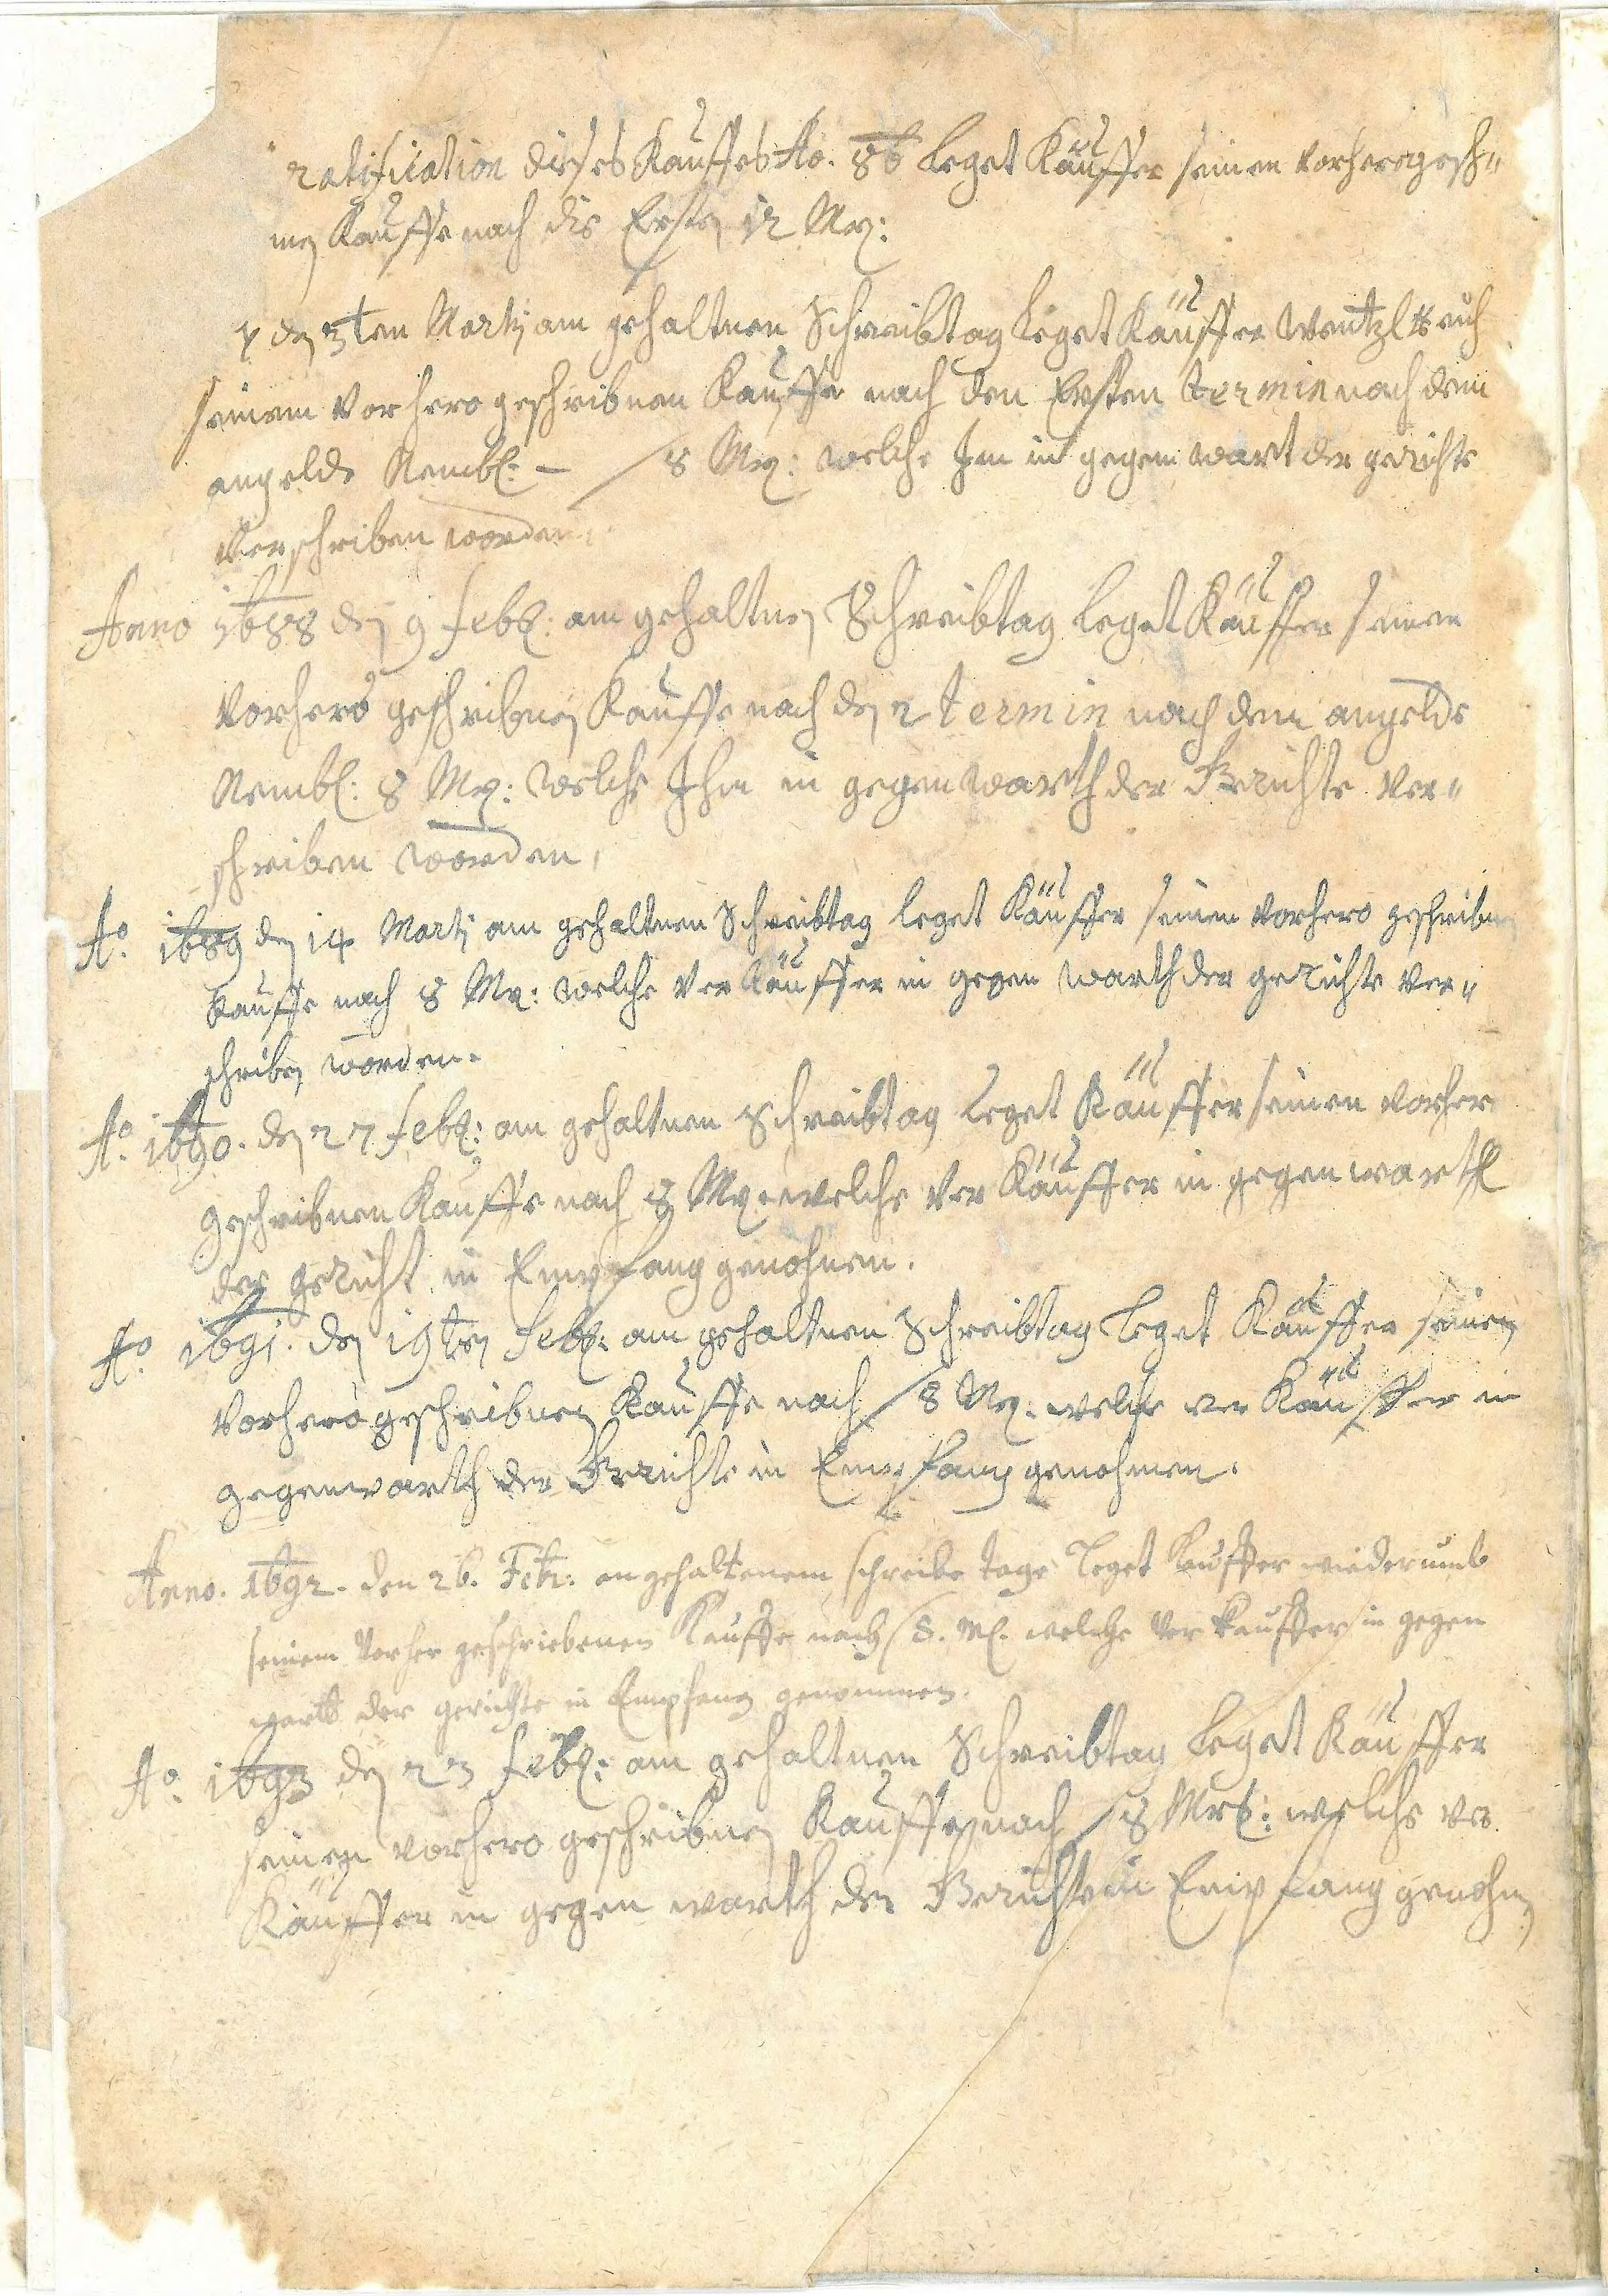 ratification dieses Kauffes Ao. 86 leget Käuffer seinen vorherogesch=
nen Kauffe nach die Ersten 12 Mrg:
7 den 3ten Martj am gehaltnen Schreibtag leget Käuffer Wentzl
seinem vorhero geschribnen Kauffe nach den Ersten termin nach dem
angelde Nembl: – / 8 Mrg: welche Im in gegenwart der gerichte
Verschriben worden.
Anno 1688 den 9 Febr: am gehaltnen Schreibtag leget Käuffer seinen
Vorhero geschribnen Kauffe nach den 2 termin nach dem angelde
Nembl: 8 Mrg: welche Ihm in gegenwarth der Gerichte Ver=
schriben worden,
Ao. 1689 den 14 Martj am gehaltnen Schreibtag leget Käuffer seinen vorhero geschribnen
Kauffe nach 8 Mrg: welche Ver Käuffer in gegen warth der gerichte Ver=
schriben worden.
Ao. 1690. den 27 Febr: am gehaltnen Schreibtag leget Käuffer seinen vorhero
geschribnen Kauffe nach 8 Mrg: welche Ver Käuffer in gegenwarth
der gericht in Empfang genohmen.
Ao. 1691. den 19ten Febr: am gehaltnen Schreibtag leget Käuffer seinen
Vorhero geschribnen Kauffe nach / 8 Mrg: welche ver Käuffer in
gegenwarth der Gerichte in Empfang genohmen.
Anno. 1692. den 26. Febr: an gehaltenem schreibe tage leget Käuffer wiederumb
seinem Vorher geschriebenen Kauffe nach / 8. Mrg. welche Ver Kauffer in gegen
warth der gerichte in Empfang genommen.
Ao. 1693 den 23 Febr: am gehaltnen Schreibtag leget Käuffer
seinen vorhero geschribnen Kauffe nach / 8 Mrg: welche ver
Käuffer in gegen warth der Gerichte in Empfang genohmen